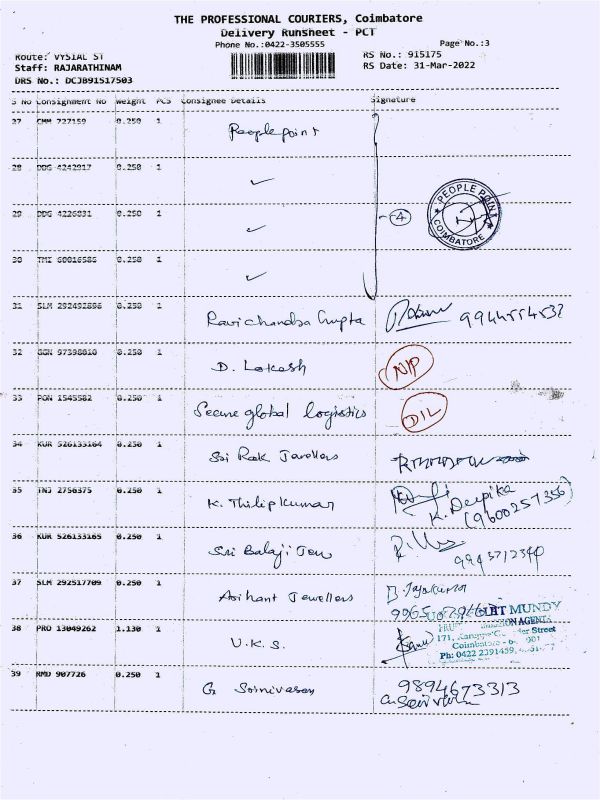 THE PROFESSIONAL COURIERS, Coimbatore
Delivery Runsheet - PCT
Phone No.:0422-3505555
Page No.:3
Route: VYSIAL ST
RS No.: 915175
Staff: RAJARATHINAM
RS Date: 31-Mar-2022
DRS No.: DCJB91517503
S No Consignment No Weight PCS Consignee Details Signature
27 CMM 727159 0.250 1 Peoplepoint
28 DDG 4242917 0.250 1 ✓
29 DDG 4226031 0.250 1 ✓
4
PEOPLE POINT
COIMBATORE
30 0.250 1 ✓
31 SLM 0.250 1 Ravichandra Gupta
32 GGN 97398810 0.250 1 D. Lokesh NIP
33 PON 1545582 0.250 1 Secure global logistics DIL
34 KUR 526133164 0.250 1 Sri Rak Jewellers
35 TNJ 2756375 0.250 1 K. Thilipkumar K. Deepika
(9600257356)
36 KUR 526133165 0.250 1 Sri Balaji Jew
37 SLM 292517709 0.250 1 Arihant Jewellers
MUNDY
38 PRO 13049262 1.130 1 V.K.S.
171,
Street
Coimbatore
Ph: 0422 2391459,
39 RMD 907726 0.250 1 G Srinivasan 9894673313